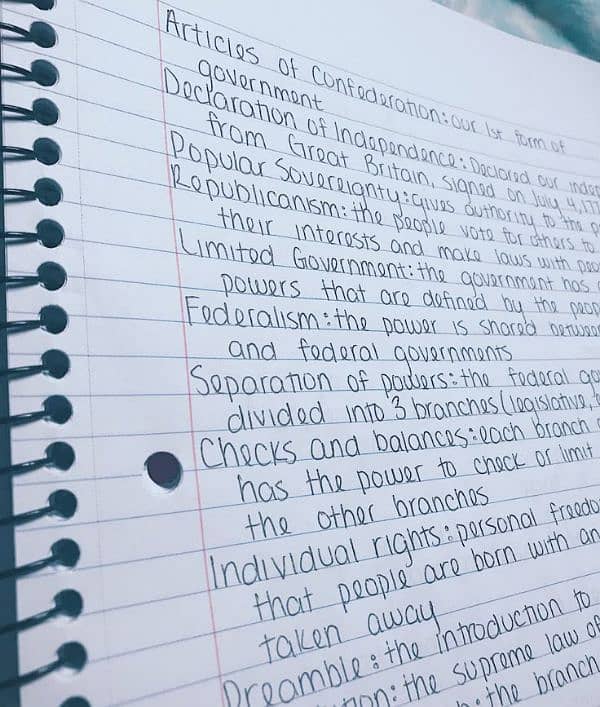 Articles of Confederation: our 1st form of
government
Declaration of Independence: Declared our
from Great Britain, signed on July 4,
Popular Sovereignty: gives authority to the
Republicanism: the people vote for others to
their interests and make laws with
Limited Government: the government has
powers that are defined by the
Federalism: the power is shared
and federal governments
Separation of powers: the federal
divided into 3 branches (legislative,
Checks and balances: each branch
has the power to check or limit
the other branches
Individual rights: personal
that people are born with
taken away
Preamble: the introduction to
the supreme law of
the branch